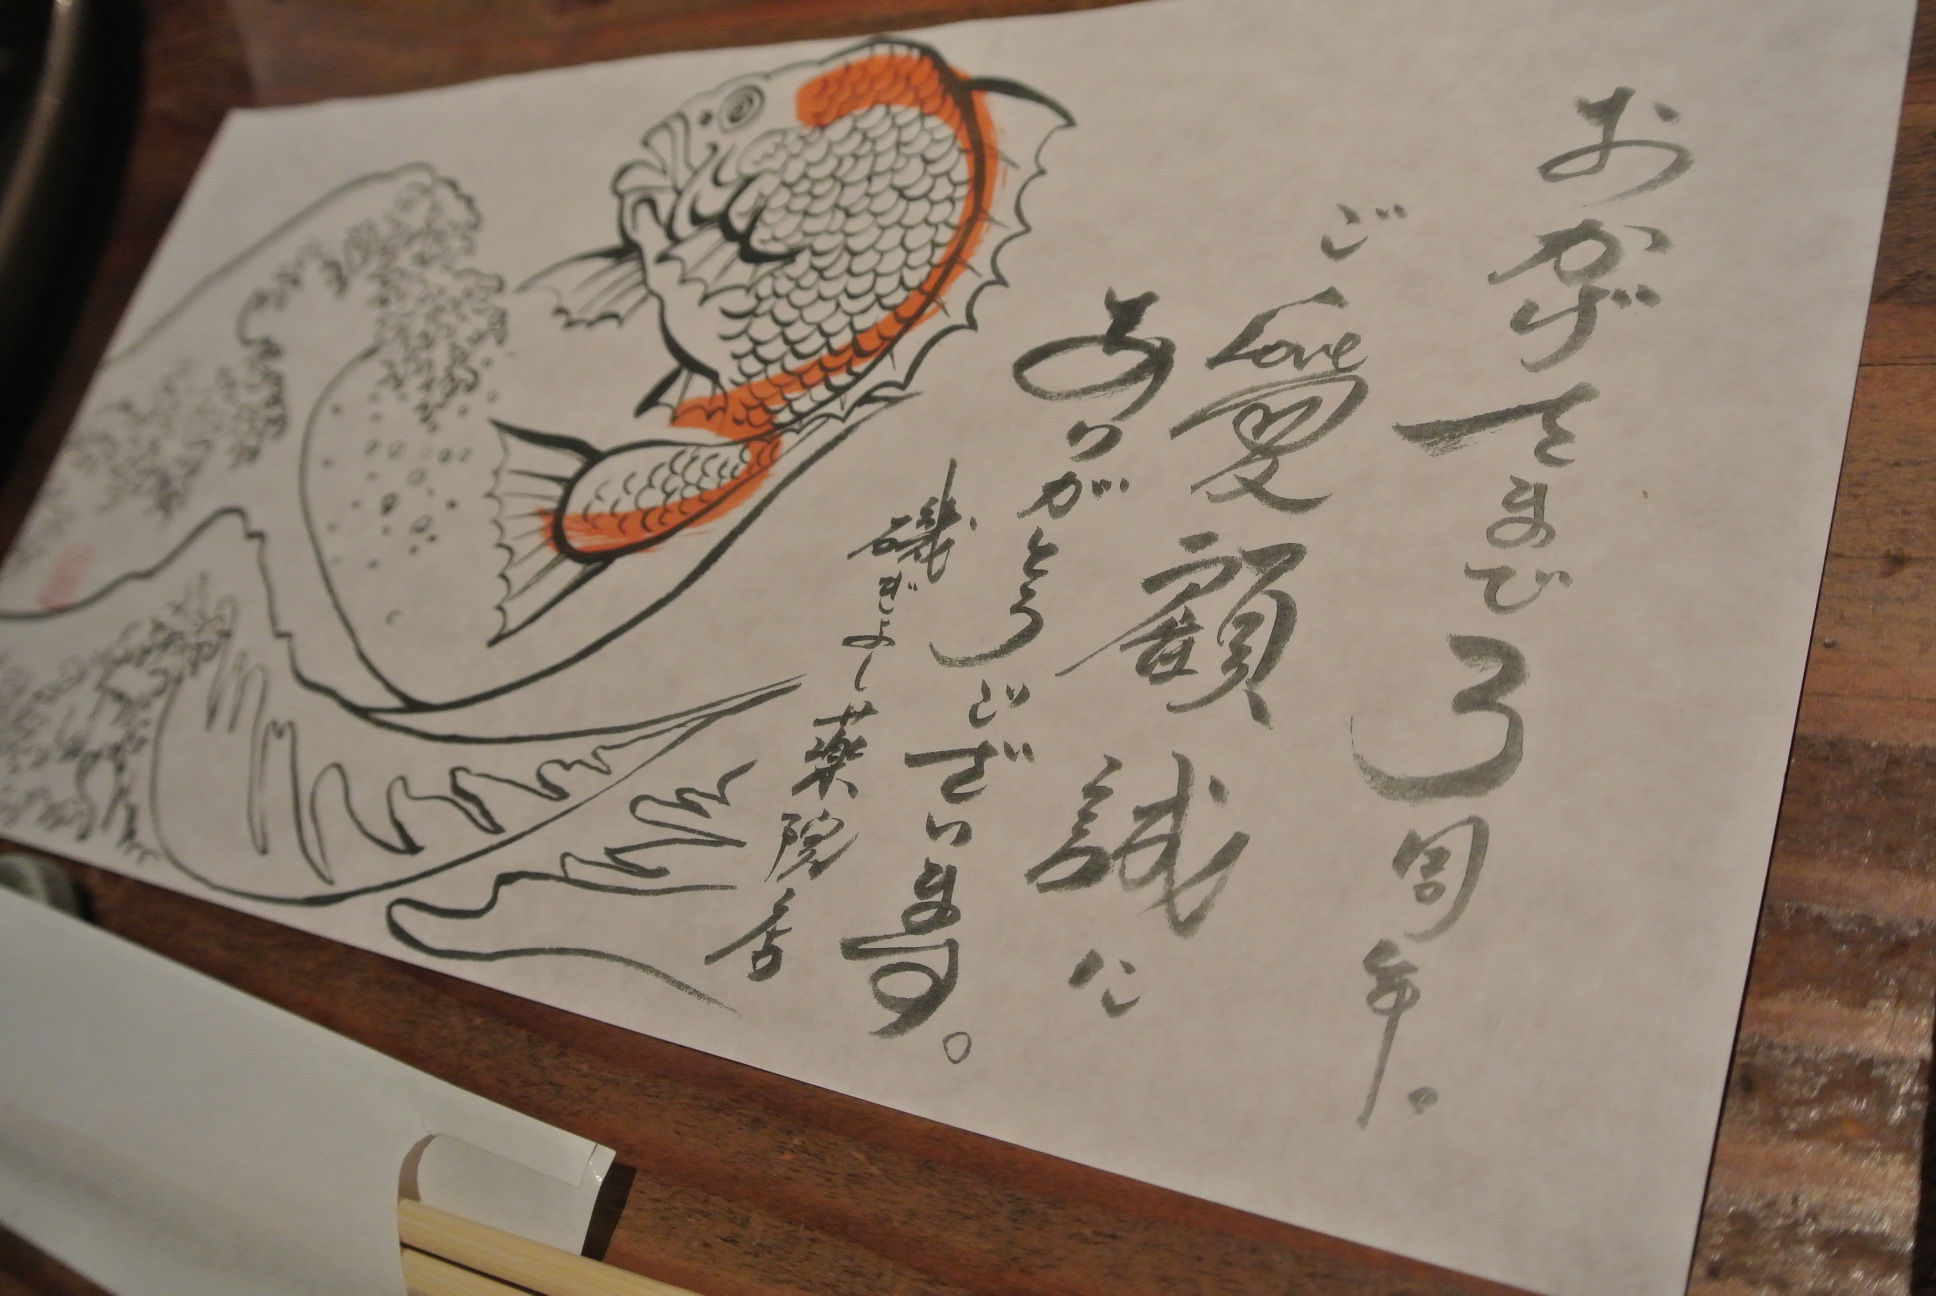 おかげさまで3周年。
ご愛顧誠に
Love
ありがとうございます。
磯ぎよし薬院店